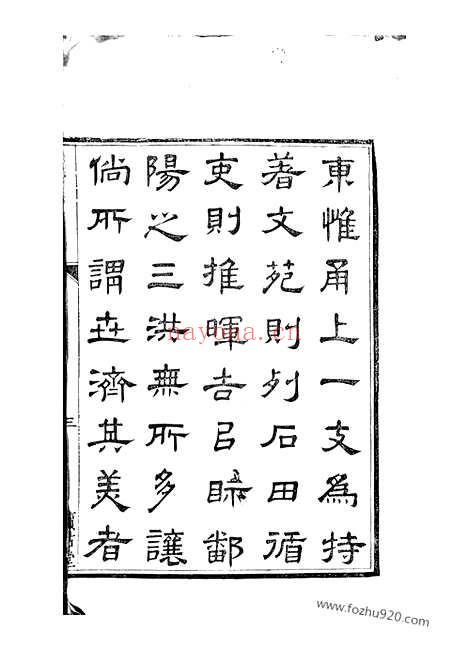 東惟甬上一支為持
著文苑則列石田循
吏則推暉吉㠯睎鄱
陽之三洪無所多讓
倘所謂世濟其美者
三
nayona.cn
www.fozhu920.com